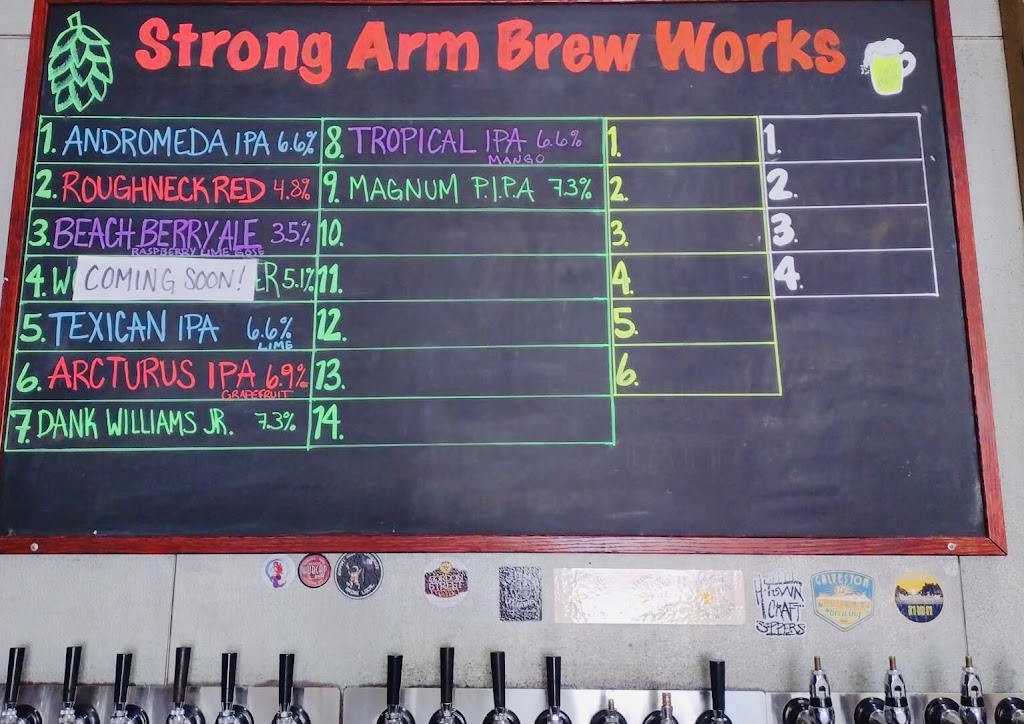 Strong Arm Brew Works
1. ANDROMEDA IPA 6.6%
2. ROUGHNECK RED 4.8%
3. BEACH BERRY ALE 3.5%
RASPBERRY LIME GOSE
4. W COMING SOON! ER 5.1%
5. TEXICAN IPA 6.6%
LIME
6. ARCTURUS IPA 6.9%
GRAPEFRUIT
7. DANK WILLIAMS JR. 7.3%
8. TROPICAL IPA 6.6%
MANGO
9. MAGNUM P.I.P.A 7.3%
10.
11.
12.
13.
14.
1.
2.
3.
4.
5.
6.
1.
2.
3.
4.
GORDON
STREET
H-TOWN
CRAFT
SIPPERS
GALVESTON